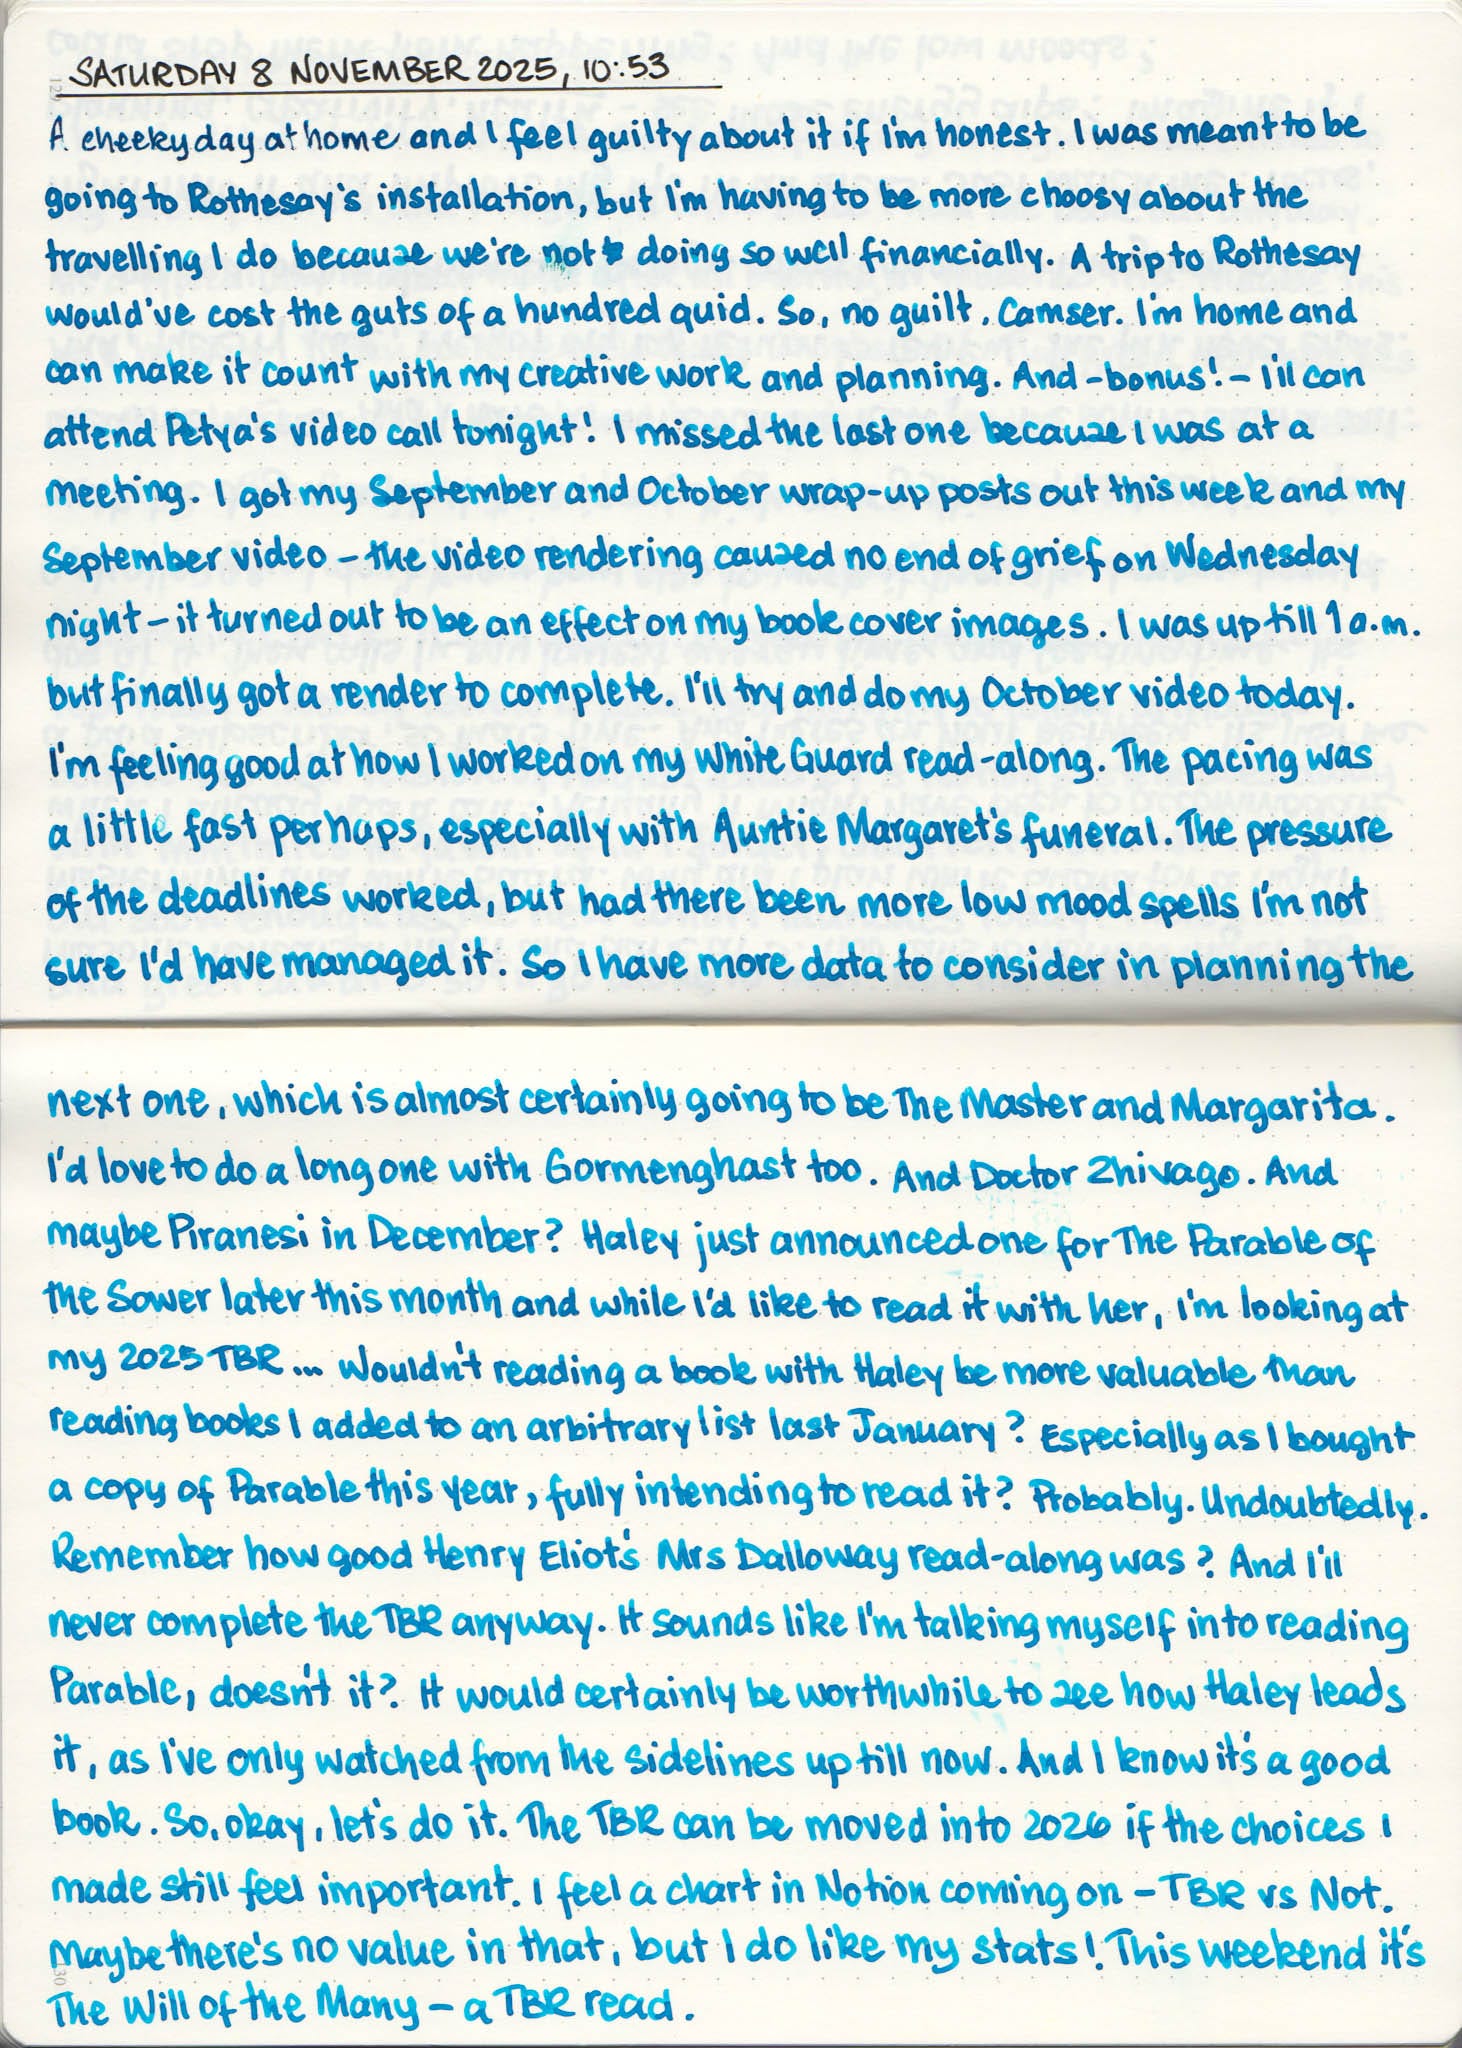 SATURDAY 8 NOVEMBER 2025, 10:53
A cheeky day at home and I feel guilty about it if I'm honest. I was meant to be
going to Rothesay's installation, but I'm having to be more choosy about the
travelling I do because we're not doing so well financially. A trip to Rothesay
would've cost the guts of a hundred quid. So, no guilt, Camser. I'm home and
can make it count with my creative work and planning. And - bonus! - I'll can
attend Petya's video call tonight! I missed the last one because I was at a
meeting. I got my September and October wrap-up posts out this week and my
September video – the video rendering caused no end of grief on Wednesday
night – it turned out to be an effect on my book cover images. I was up till 1 a.m.
but finally got a render to complete. I'll try and do my October video today.
I'm feeling good at how I worked on my White Guard read-along. The pacing was
a little fast perhaps, especially with Auntie Margaret's funeral. The pressure
of the deadlines worked, but had there been more low mood spells I'm not
sure I'd have managed it. So I have more data to consider in planning the
129
next one, which is almost certainly going to be The Master and Margarita.
I'd love to do a long one with Gormenghast too. And Doctor Zhivago. And
maybe Piranesi in December? Haley just announced one for The Parable of
the Sower later this month and while I'd like to read it with her, I'm looking at
my 2025 TBR... Wouldn't reading a book with Haley be more valuable than
reading books I added to an arbitrary list last January? Especially as I bought
a copy of Parable this year, fully intending to read it? Probably. Undoubtedly.
Remember how good Henry Eliot's Mrs Dalloway read-along was? And I'll
never complete the TBR anyway. It sounds like I'm talking myself into reading
Parable, doesn't it? It would certainly be worthwhile to see how Haley leads
it, as I've only watched from the sidelines up till now. And I know it's a good
book. So, okay, let's do it. The TBR can be moved into 2026 if the choices I
made still feel important. I feel a chart in Notion coming on – TBR vs Not.
Maybe there's no value in that, but I do like my stats! This weekend it's
The Will of the Many – a TBR read.
130